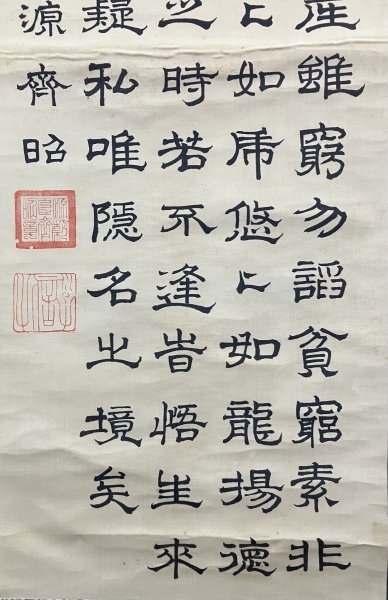 産雖窮勿謟貧窮素非
〻如乕悠〻如龍揚德
時若不逢旹悟生來
疑私唯隱名之境矣
源齊昭